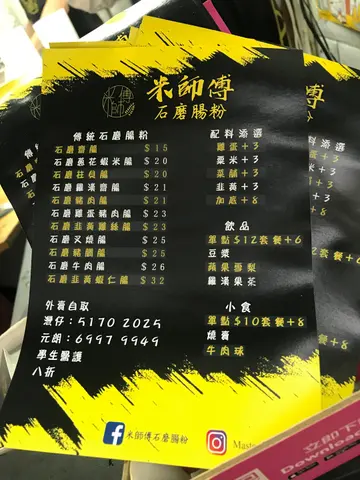 米師傅
石磨腸粉
傳統石磨腸粉
石磨齋腸 $15
石磨蔥花蝦米腸 $20
石磨柱良腸 $20
石磨羅漢齋腸 $21
石磨豬肉腸 $21
石磨雞蛋豬肉腸 $23
石磨韭黃雞絲腸 $23
石磨叉燒腸 $25
石磨豬膶腸 $25
石磨牛肉腸 $26
石磨韭黃蝦仁腸 $32
配料添選
雞蛋+3
粟米+3
菜脯+3
韭黃+3
加底+8
飲品
單點$12套餐+6
豆漿
蘋果雪梨
羅漢果茶
小食
單點$10套餐+8
燒賣
牛肉球
外賣自取
灣仔:5170 2025
元朗:6997 9949
學生醫護
八折
米師傅石磨腸粉
Maste
立即下
Download